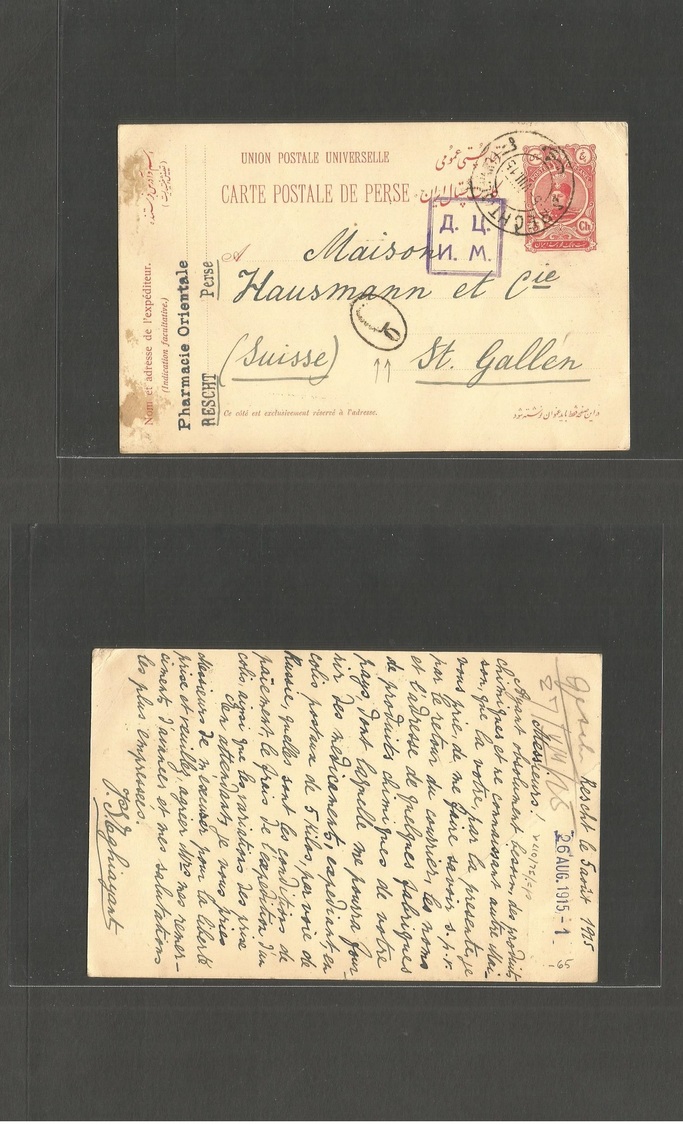 UNION POSTALE UNIVERSELLE
CARTE POSTALE DE PERSE
RECHT
Ch
Д. Ц.
И. М.
A Maison
Hausmann et Cie
(Suisse) St. Gallen
6
Ce côté est exclusivement réservé à l'adresse.
Nom et adresse de l'expéditeur.
(Indication facultative.)
Pharmacie Orientale
RESCHT Perse
Rescht le 5 août 1915
26 AUG. 1915 - 1
-65
Messieurs!
Ayant absolument besoin des produits
chimiques et ne connaissant autre Mai-
son, que la votre, par la présente, je
vous prie, de me faire savoir s.p.r.
par le retour du courrier, les noms
et l'adresse de quelques fabriques
de produits chimiques de notre
pays, dont laquelle me pourra four-
nir des medicaments, expediant en
colis postaux de 5 kilos, par voie de
Russie, quelles sont les conditions de
paiement, le frais de l'expedition d'un
colis, ainsi que les variations des prix
En attendant, je vous prie
Messieurs de m'excuser pour la liberté
prise et veuillez agréer Mrs mes remer-
ciments d'avances et mes salutations
les plus empressées.